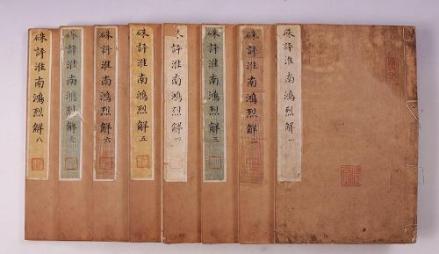 硃評淮南鴻烈解 一
硃評淮南鴻烈解 二
硃評淮南鴻烈解 三
硃評淮南鴻烈解
硃評淮南鴻烈解 五
硃評淮南鴻烈解 六
硃評淮南鴻烈解 七
硃評淮南鴻烈解 八